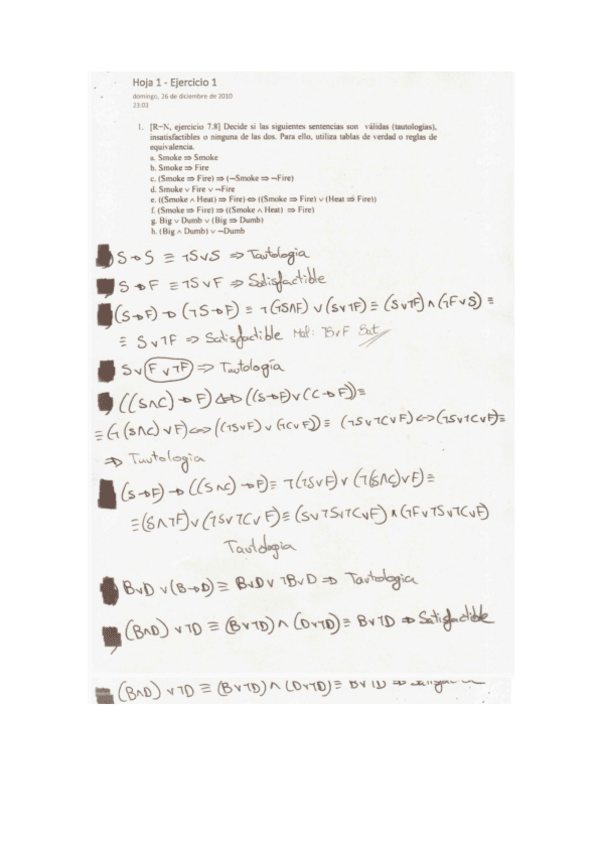 Hoja 1 - Ejercicio 1
domingo, 26 de diciembre de 2010
23:03
1. [R-N, ejercicio 7.8] Decide si las siguientes sentencias son válidas (tautologías),
insatisfactibles o ninguna de las dos. Para ello, utiliza tablas de verdad o reglas de
equivalencia.
a. Smoke ⇒ Smoke
b. Smoke ⇒ Fire
c. (Smoke ⇒ Fire) ⇒ (¬Smoke ⇒ ¬Fire)
d. Smoke ∨ Fire ∨ ¬Fire
e. ((Smoke ∧ Heat) ⇒ Fire) ⇔ ((Smoke ⇒ Fire) ∨ (Heat ⇒ Fire))
f. (Smoke ⇒ Fire) ⇒ ((Smoke ∧ Heat) ⇒ Fire)
g. Big ∨ Dumb ∨ (Big ⇒ Dumb)
h. (Big ∧ Dumb) ∨ ¬Dumb
S→S ≡ ¬S∨S ⇒ Tautologia
S→F ≡ ¬S∨F ⇒ Satisfactible
(S→F) → (¬S→F) ≡ ¬(¬S∧F) ∨ (S∨¬F) ≡ (S∨¬F) ∧ (¬F∨S) ≡
≡ S∨¬F ⇒ Satisfactible Mal: ¬S∨F Sat
S∨(F∨¬F) ⇒ Tautología
((S∧C)→F) ⇔ ((S→F)∨(C→F)) ≡
≡ (¬(S∧C)∨F) ⇔ ((¬S∨F)∨(¬C∨F)) ≡ (¬S∨¬C∨F) ⇔ (¬S∨¬C∨F) ≡
⇒ Tautologia
(S→F) → ((S∧C)→F) ≡ ¬(¬S∨F) ∨ (¬(S∧C)∨F) ≡
≡ (S∧¬F)∨(¬S∨¬C∨F) ≡ (S∨¬S∨¬C∨F) ∧ (¬F∨¬S∨¬C∨F)
Tautologia
B∨D∨(B→D) ≡ B∨D∨¬B∨D ⇒ Tautologia
(B∧D)∨¬D ≡ (B∨¬D)∧(D∨¬D) ≡ B∨¬D ⇒ Satisfactible
(B∧D)∨¬D ≡ (B∨¬D)∧(D∨¬D) ≡ B∨¬D ⇒